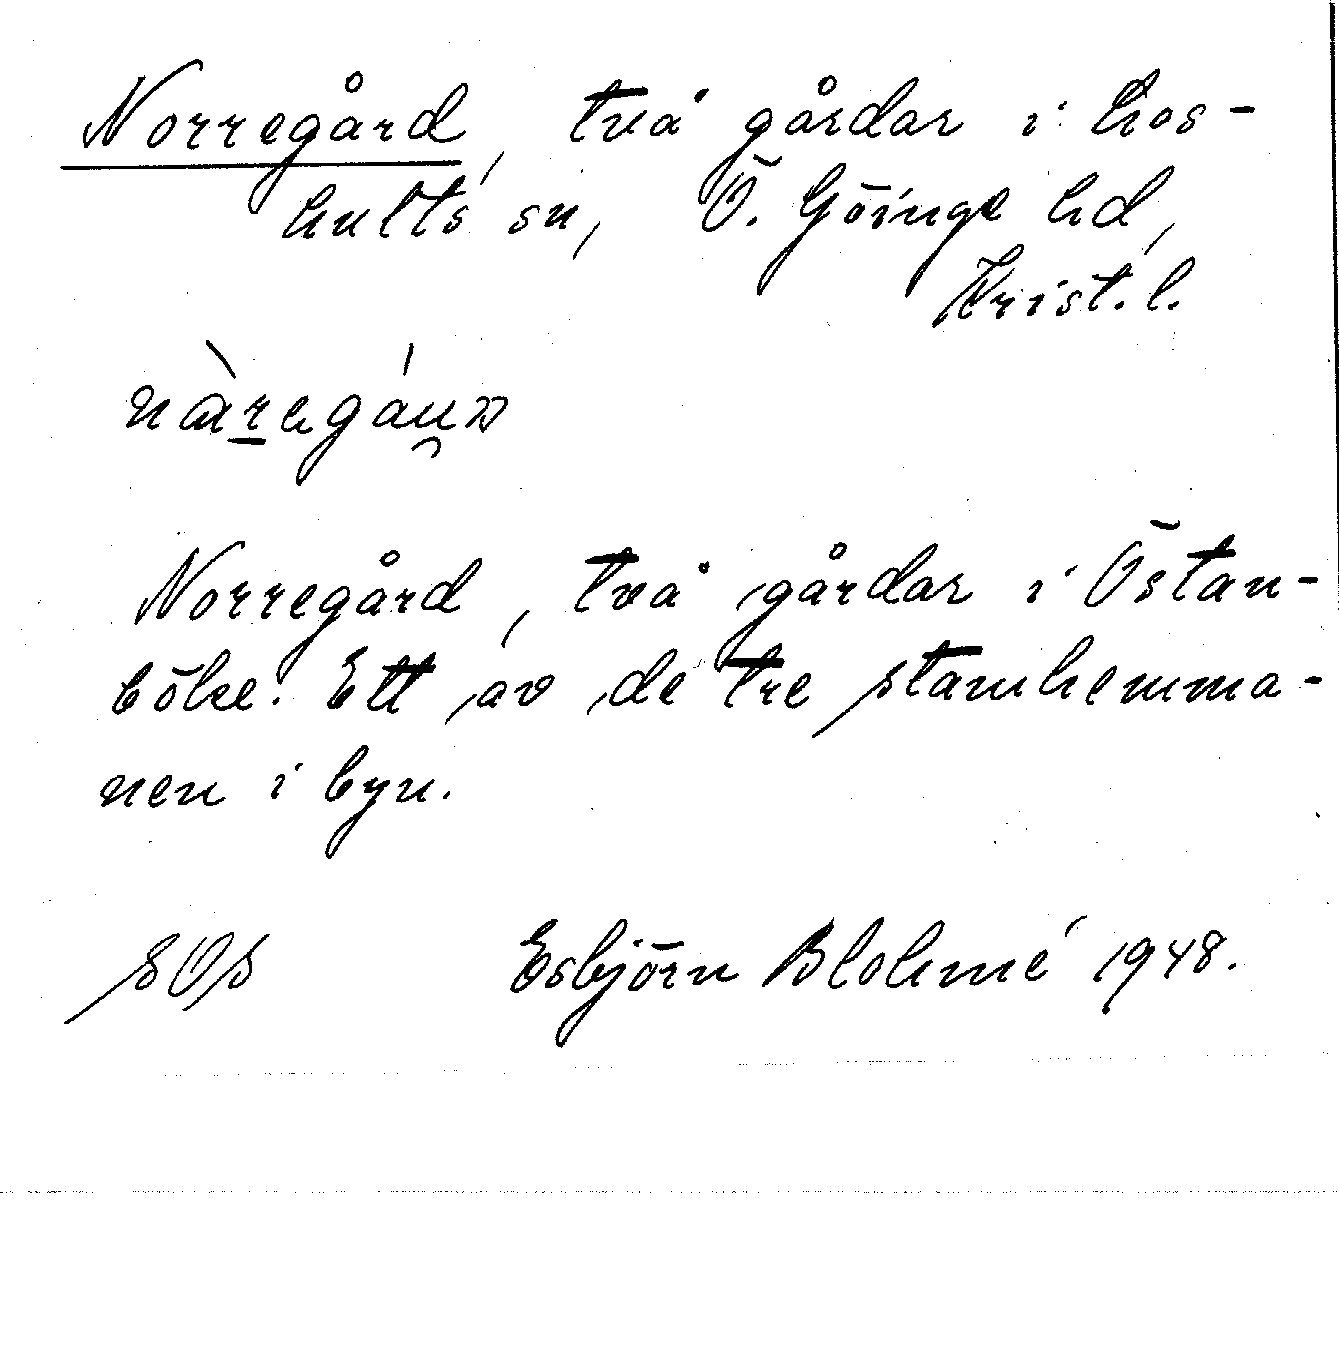 Norregård, två gårdar i Los-
hults sn, Ö. Göinge hd,
Krist. l.
Norregård, två gårdar i Östan-
böke. Ett av de tre stamhemma-
nen i byn.
SOS Esbjörn Blohmé 1948.